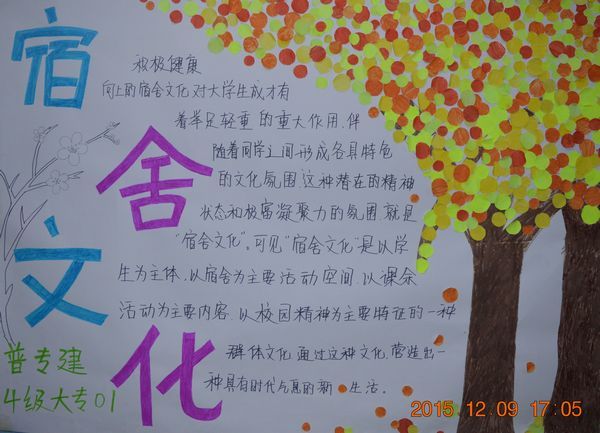 宿舍文化
积极健康
向上的宿舍文化对大学生成才有
着举足轻重的重大作用.伴
随着同学之间形成各具特色
的文化氛围.这种潜在的精神
状态和极富凝聚力的氛围.就是
“宿舍文化”。可见“宿舍文化”是以学
生为主体.以宿舍为主要活动空间.以课余
活动为主要内容.以校园精神为主要特征的一种
群体文化.通过这种文化.营造出一
种具有时代气息的新生活。
普专建
4级大专01
2015.12.09 17:05